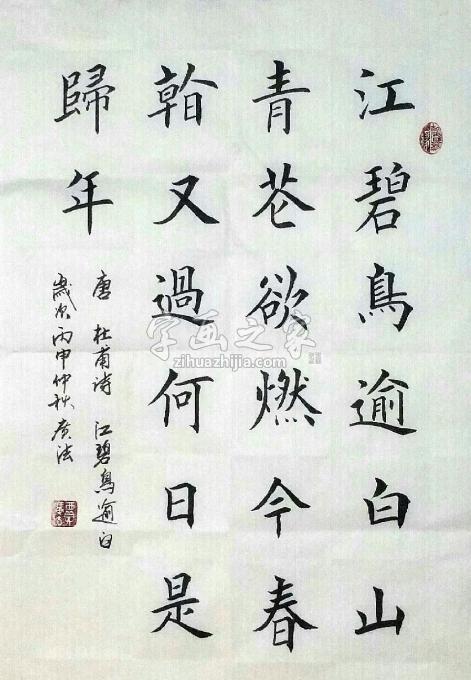 江碧鳥逾白山
青花欲燃今春
看又過何日是
歸年
唐 杜甫诗 江碧鳥逾白
歲次丙申仲秋广法
字画之家
zihuazhijia.com